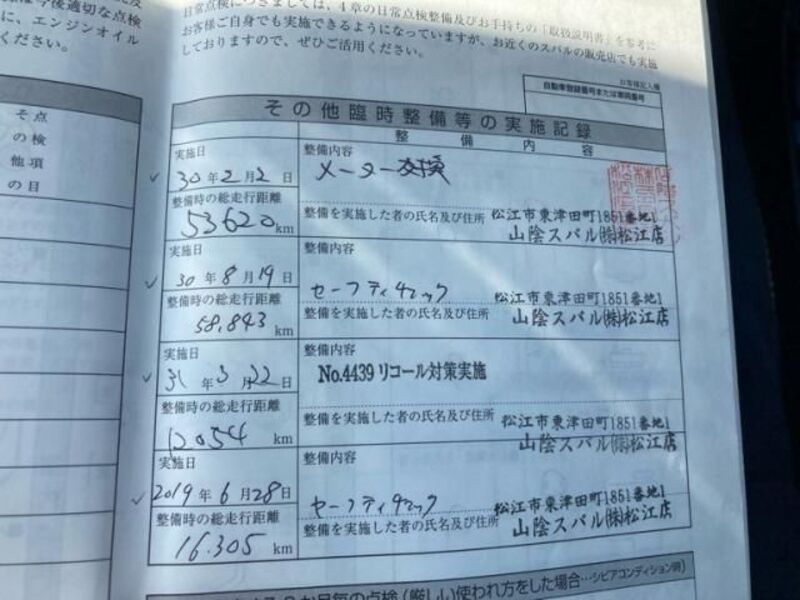 に、エンジンオイル
ください。
日常点検につきましては、4章の日常点検整備及びお手持ちの「取扱説明書」を参考に
お客様ご自身でも実施できるようになっていますが、お近くのスバルの販売店でも実施
しておりますので、ぜひご活用ください。
お客様記入欄
自動車登録番号または車両番号
その他臨時整備等の実施記録
整備内容
そ点
の検
他項
の目
実施日
30年2月2日
整備内容
メーター交換
整備時の総走行距離
53620km
整備を実施した者の氏名及び住所
松江市東津田町1851番地1
山陰スバル㈱松江店
実施日
30年8月19日
整備内容
セーフティチェック
整備時の総走行距離
58,843km
整備を実施した者の氏名及び住所
松江市東津田町1851番地1
山陰スバル㈱松江店
実施日
31年3月22日
整備内容
No.4439 リコール対策実施
整備時の総走行距離
12054km
整備を実施した者の氏名及び住所
松江市東津田町1851番地1
山陰スバル㈱松江店
実施日
2019年6月28日
整備内容
セーフティチェック
整備時の総走行距離
16.305km
整備を実施した者の氏名及び住所
松江市東津田町1851番地1
山陰スバル㈱松江店
か月毎の点検(厳しい使われ方をした場合…シビアコンディション時)